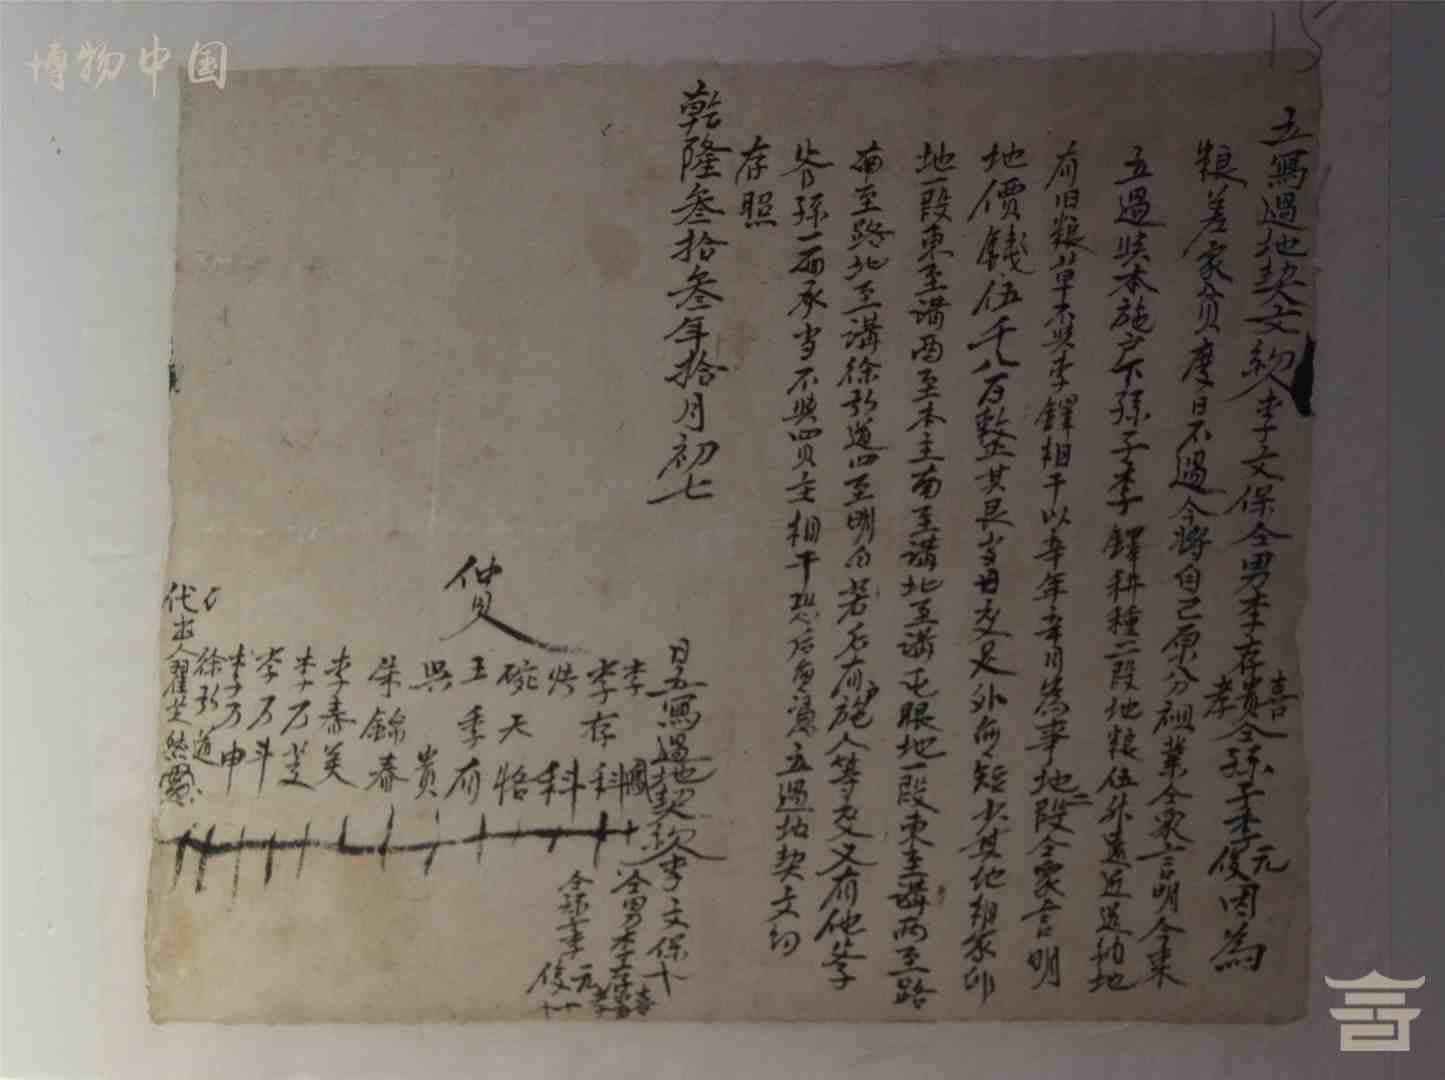 博物中国
15
立寫過地契文約人李文保仝男李存喜貴孝仝孫子李元俊因為
粮差家貧度日不過今將自己原分祖業仝衆言明今東
立過與本施户下孫子李鐸耕種二段地粮伍升遠近送納地
有旧粮草不與李鐸相干以辛年辛月為事地二段仝家言明
地價錢伍千八百整其艮当日交足外無短少其地相家卯
地一段東至溝西至本主南至溝北至溝屯眼地一段東至溝西至路
南至路北至溝徐引道四至明白若后有户施人等爻又有他爷
爷孫一面承当不與買主相干恐后無憑立過地契文約
存照
乾隆叁拾叁年拾月初七
日立寫過地契約人李文保十
仝男李存喜貴孝
仝孫子李元俊十十
李國
李存科
洪科
碗天恪
王季有
吳貴
朱錦春
李泰美
李万芝
李万斗
李万申
徐引道
代书人翟芝然